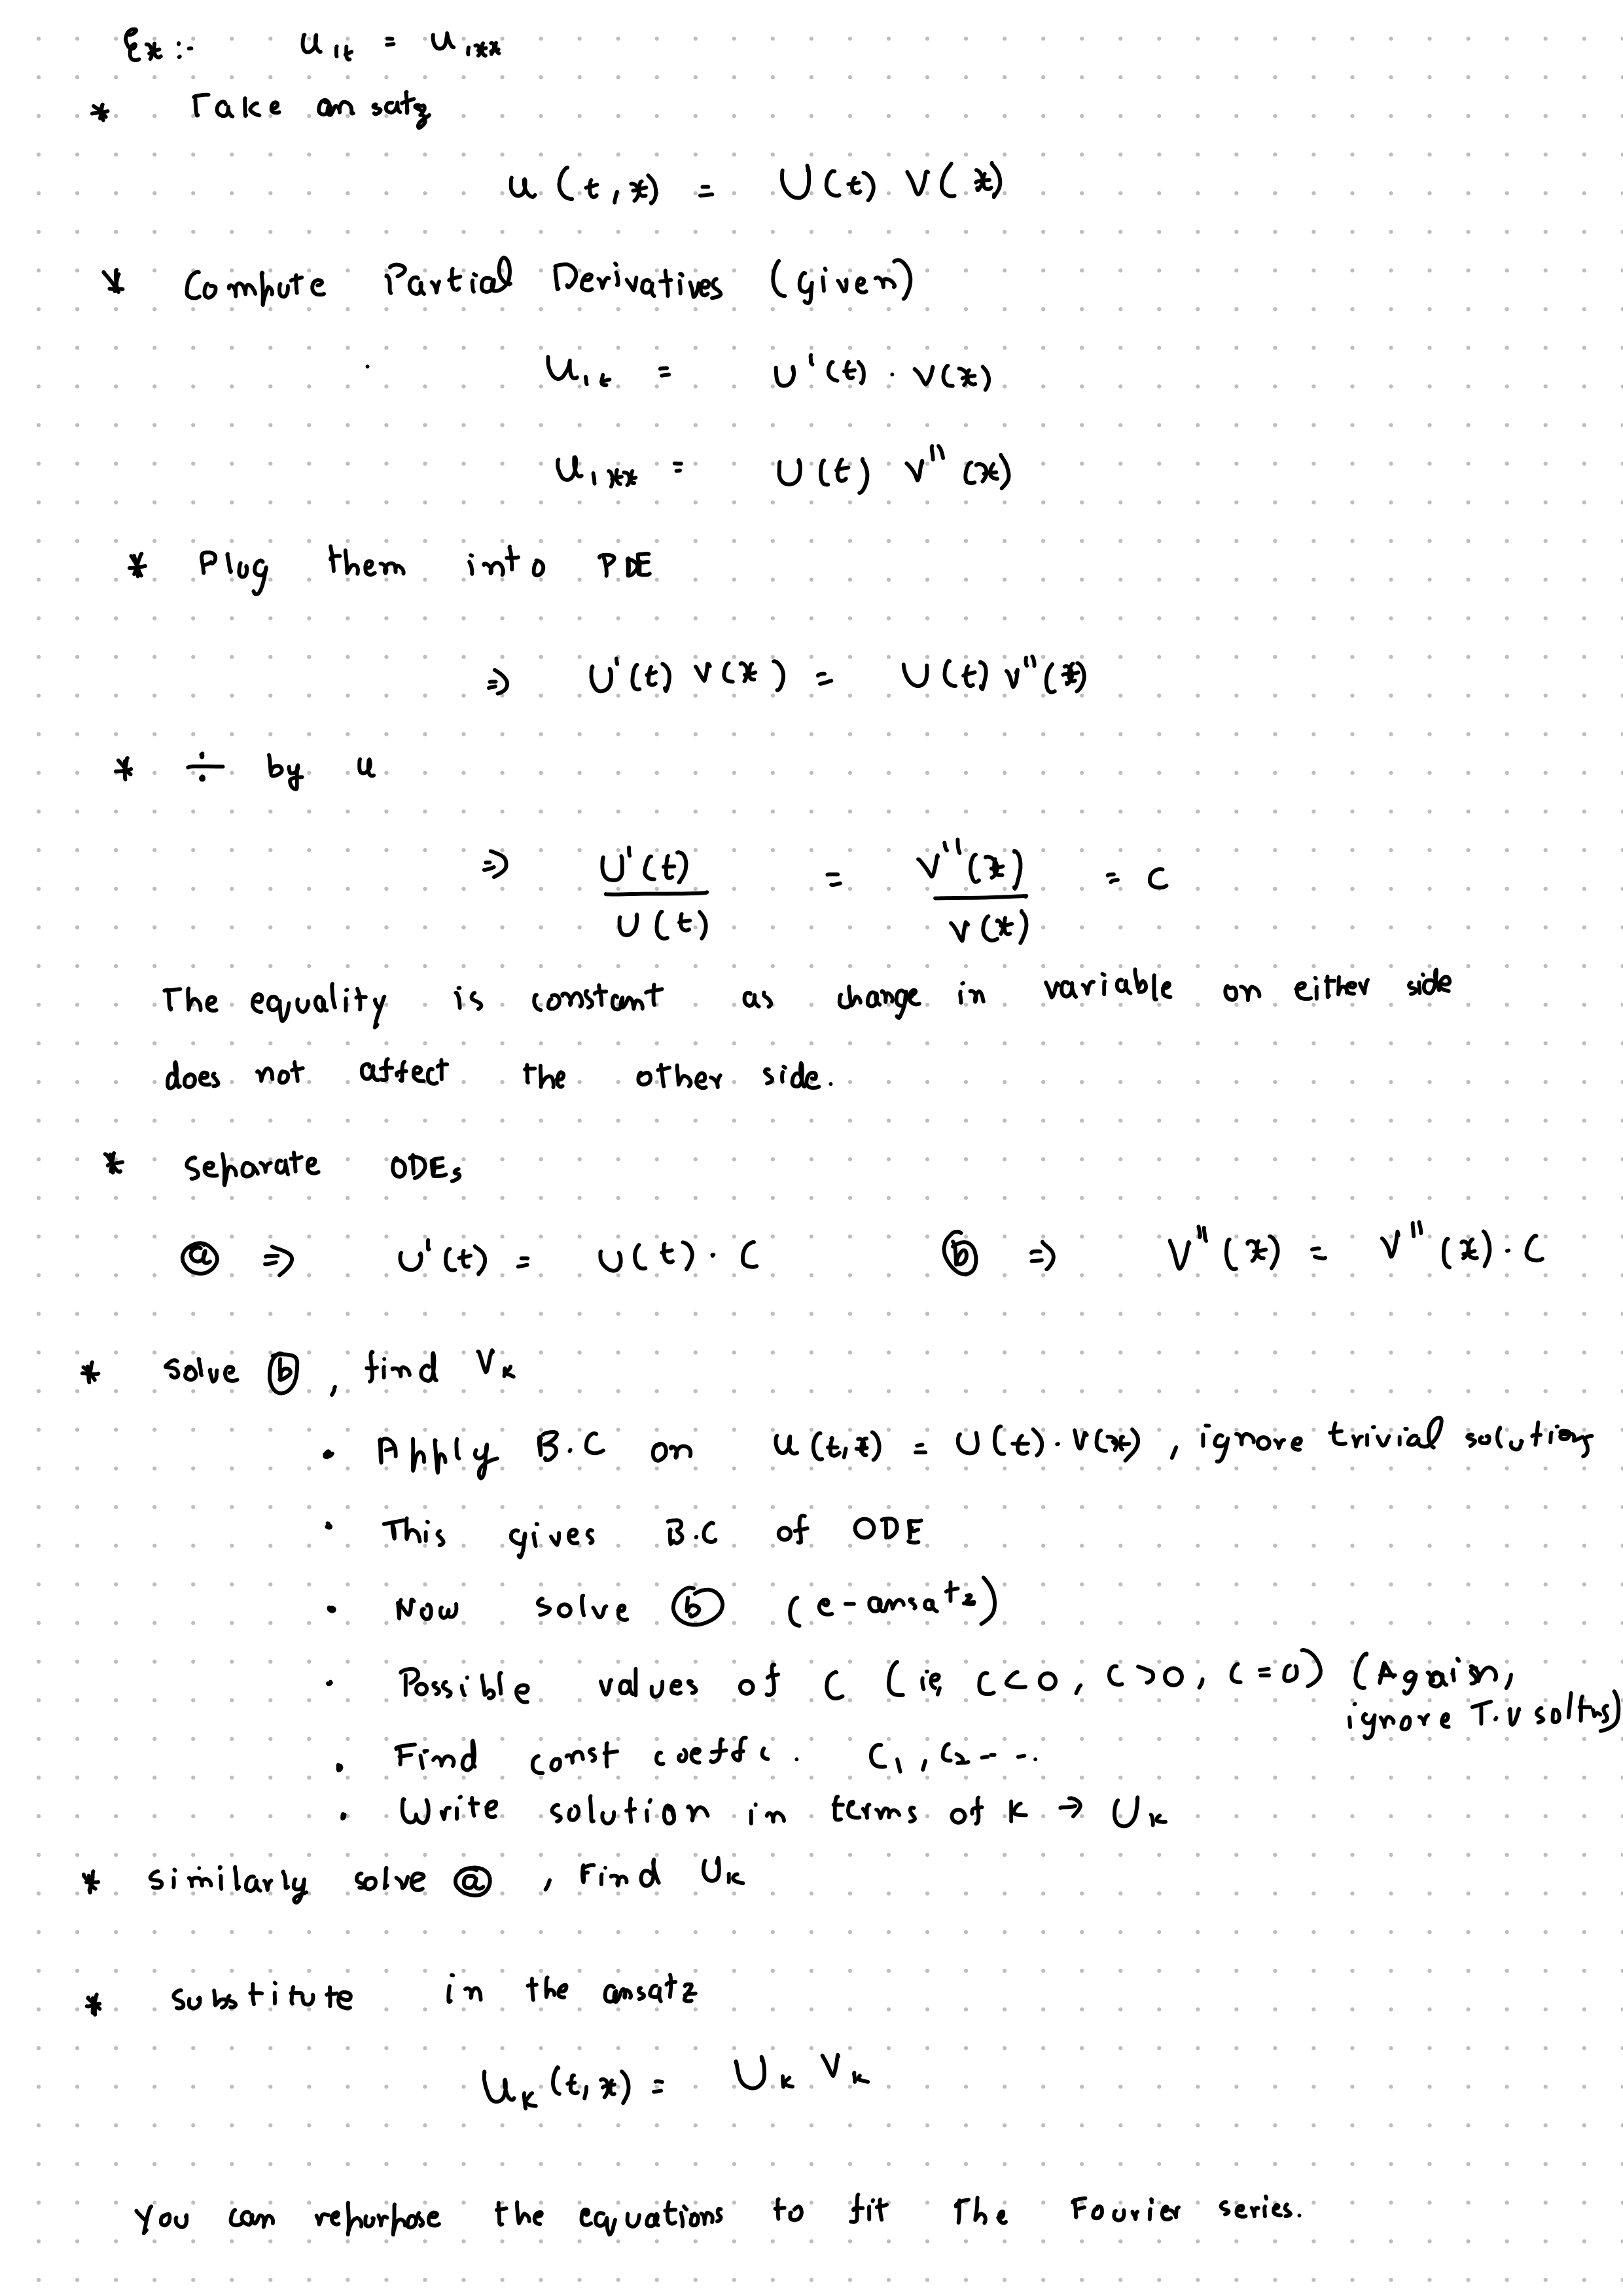 Ex :- u,t = u,xx
* Take ansatz
u (t,x) = U(t) V(x)
* Compute Partial Derivatives (given)
u,t = U'(t) · V(x)
u,xx = U(t) V''(x)
* Plug them into PDE
⇒ U'(t) V(x) = U(t) V''(x)
* ÷ by u
⇒ U'(t)/U(t) = V''(x)/V(x) = C
The equality is constant as change in variable on either side
does not affect the other side.
* Separate ODEs
ⓐ ⇒ U'(t) = U(t) · C ⓑ ⇒ V''(x) = V''(x) · C
* Solve ⓑ , find Vk
• Apply B.C on u(t,x) = U(t) · V(x) , ignore trivial solutions
• This gives B.C of ODE
• Now solve ⓑ (e-ansatz)
• Possible values of C (ie, C<0, C>0, C=0) (Again,
ignore T.V soltns)
• Find const coeffc. C1, C2 -- -.
• Write solution in terms of k → Uk
* Similarly solve ⓐ , Find Uk
* Substitute in the ansatz
uk (t,x) = Uk Vk
You can repurpose the equations to fit The Fourier series.